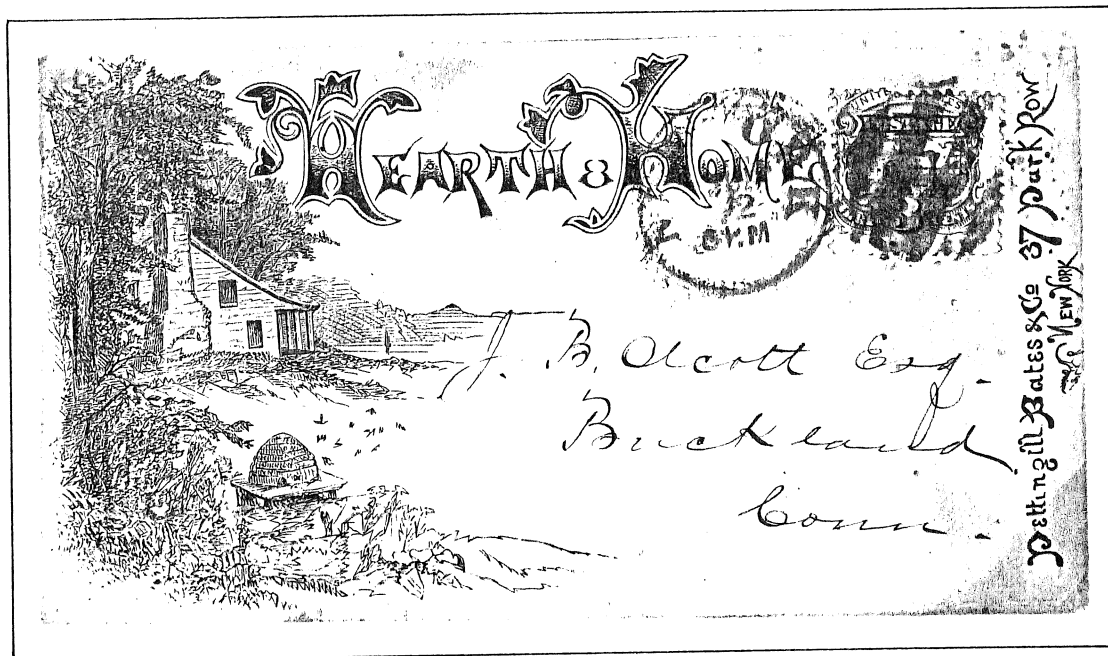 HEARTH & HOME
12
8 P.M
J. B. Olcott Esq.
Buckland
Conn.
Pettingill Bates & Co 37 Park Row
NEW YORK